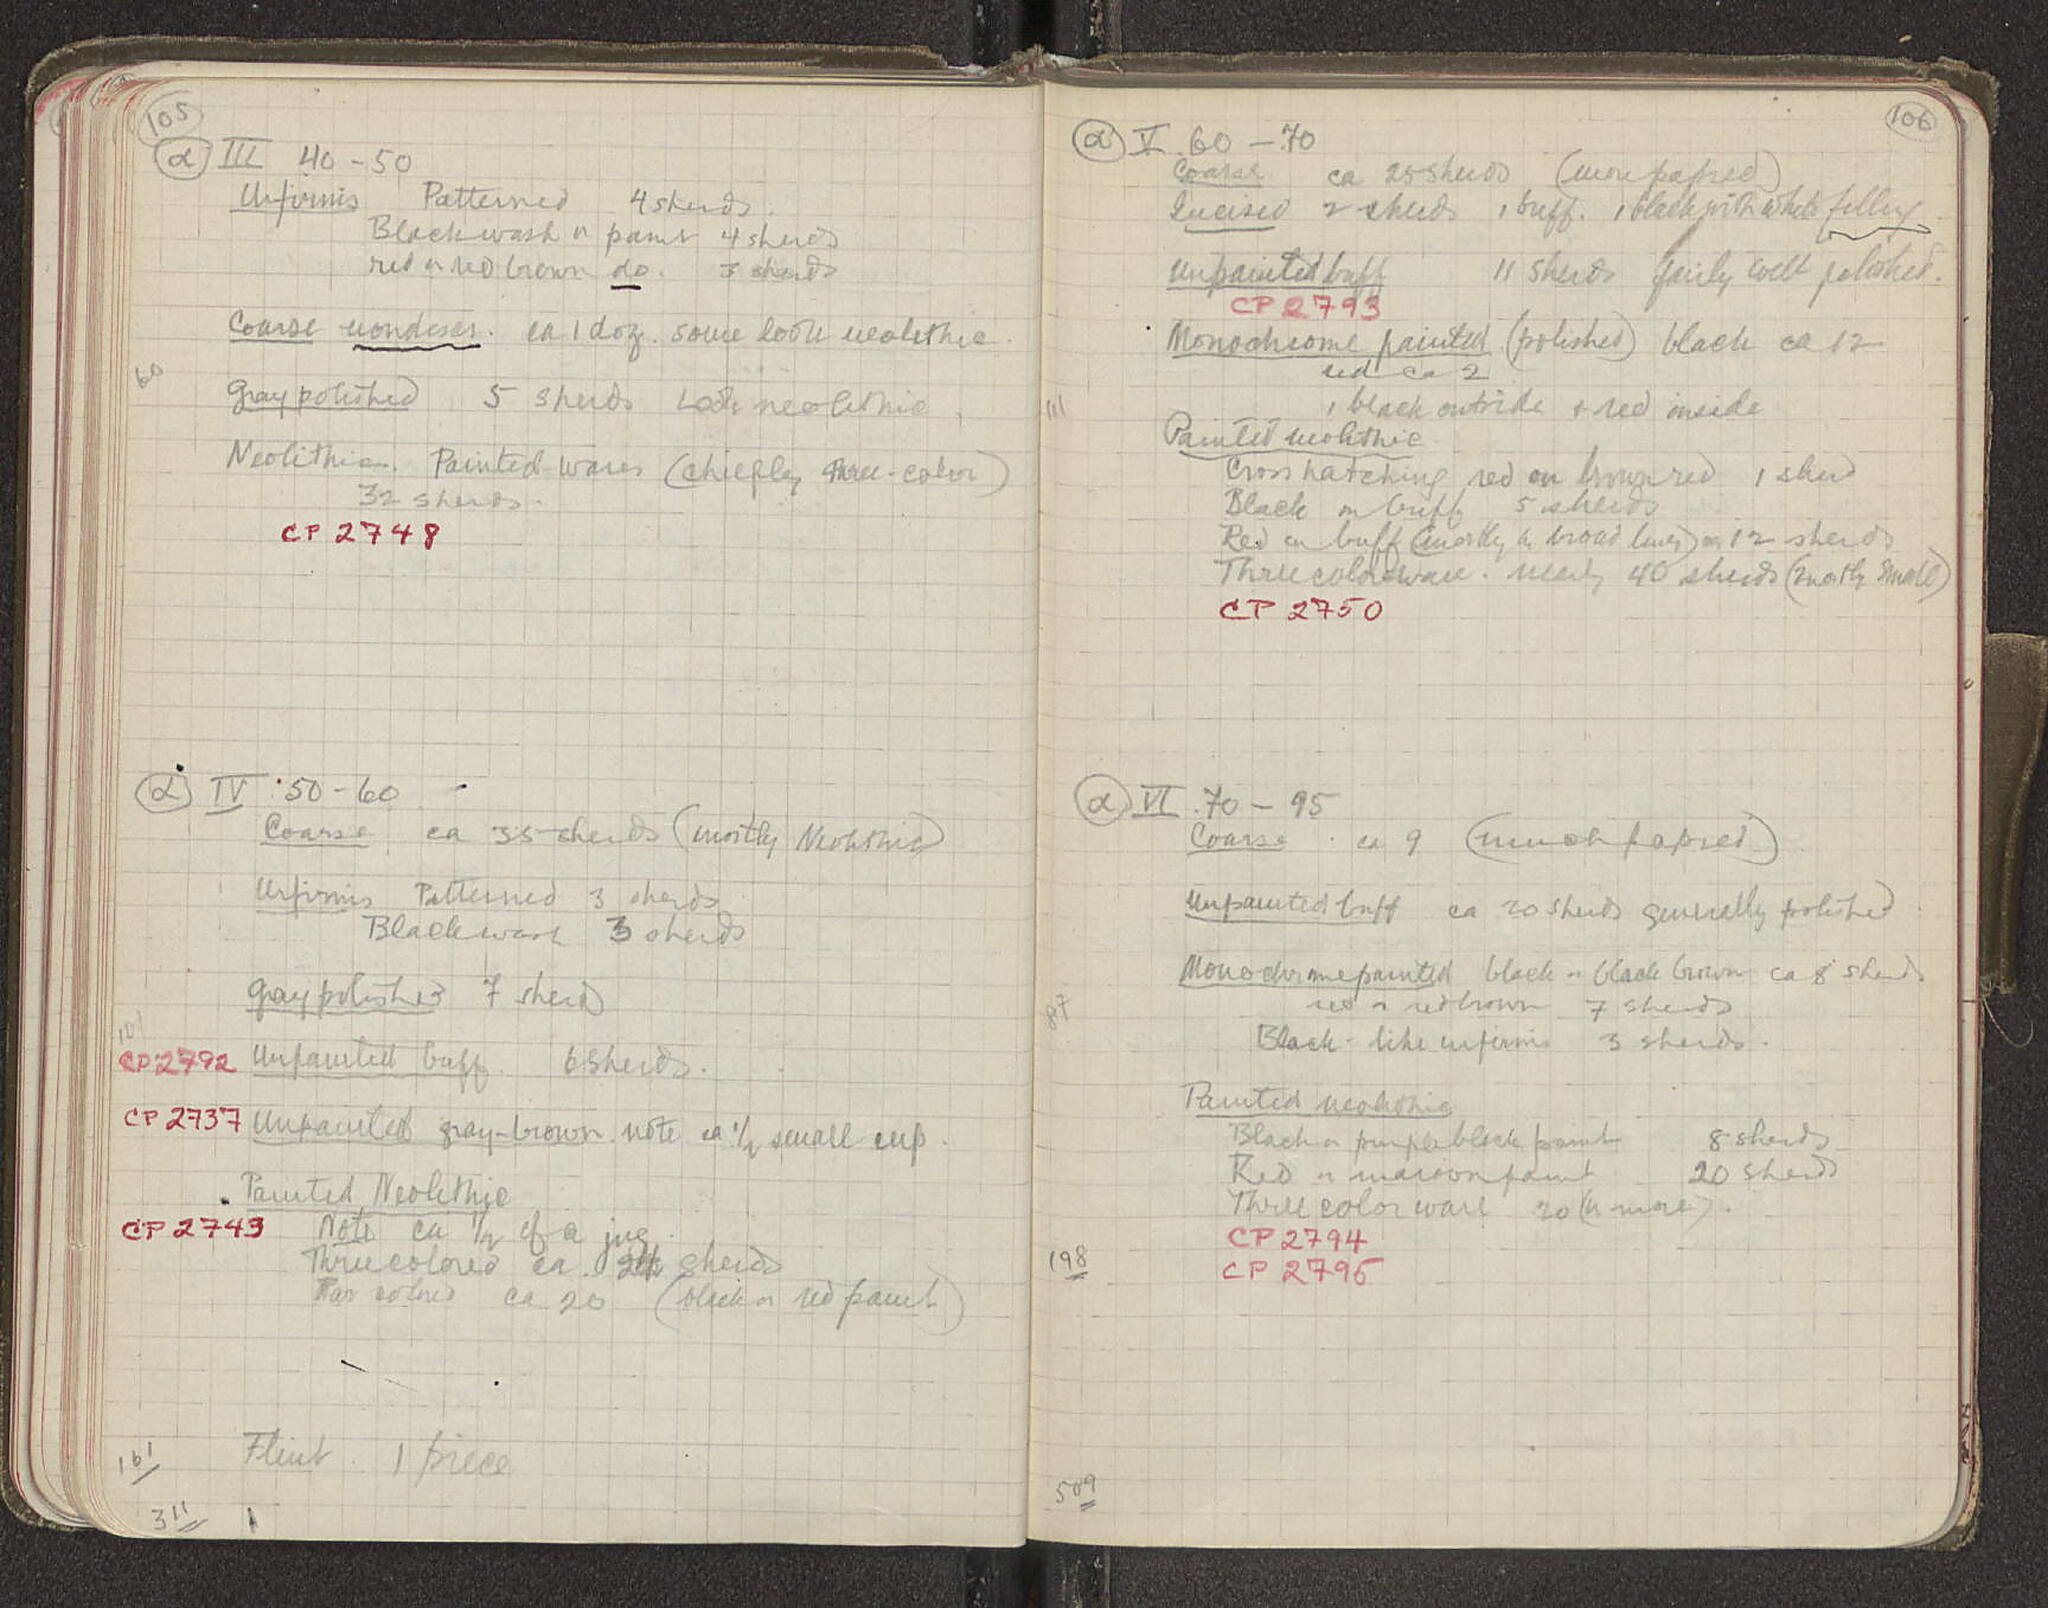 105
α III 40-50
Urfirnis Patterned 4 sherds.
Black wash or paint 4 sherds
red or red brown do. 3 sherds
Coarse nondescr. ca 1 doz. some look neolithic.
60
Gray polished 5 sherds Look neolithic.
Neolithic. Painted wares (chiefly three-color)
32 sherds.
CP 2748
α IV 50-60
Coarse ca 35 sherds (mostly Neolithic)
Urfirnis Patterned 3 sherds
Black wash 3 sherds
Gray polished 7 sherds
101
CP 2792 Unpainted buff. 6 sherds.
CP 2737 Unpainted gray-brown. note ca 1/2 small cup.
Painted Neolithic
CP 2743 Note ca 1/2 of a jug.
Three colored ca. 24 sherds
colored ca 20 (black or red paint)
Flint 1 piece
161
311
106
α V 60-70
Coarse ca 25 sherds
Incised 2 sherds 1 buff. 1 black with white filling.
Unpainted buff 11 sherds fairly well polished.
CP 2793
Monochrome painted (polished) black ca 12
red ca 2
111
1 black outside + red inside
Painted neolithic
Cross hatching red on brown red 1 sherd
Black on buff 5 sherds
Red on buff (mostly in broad lines) ca 12 sherds
Three color ware. nearly 40 sherds (mostly small)
CP 2750
α VI 70-95
Coarse ca 9
Unpainted buff ca 20 sherds generally polished
Monochrome painted black or black brown ca 8 sherds
87
red or red brown 7 sherds
Black-like urfirnis 3 sherds.
Painted neolithic
Black or purple black paint 8 sherds
Red or maroon paint 20 sherds
Three color ware 20 (or more).
CP 2794
198
CP 2795
509